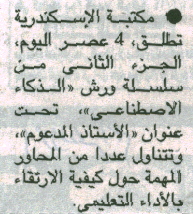 ● مكتبة الإسكندرية
تطلق، 4 عصر اليوم،
الجزء الثانى من
سلسلة ورش «الذكاء
الاصطناعى»، تحت
عنوان «الأستاذ المدعوم»،
وتتناول عددا من المحاور
المهمة حول كيفية الارتقاء
بالأداء التعليمى.